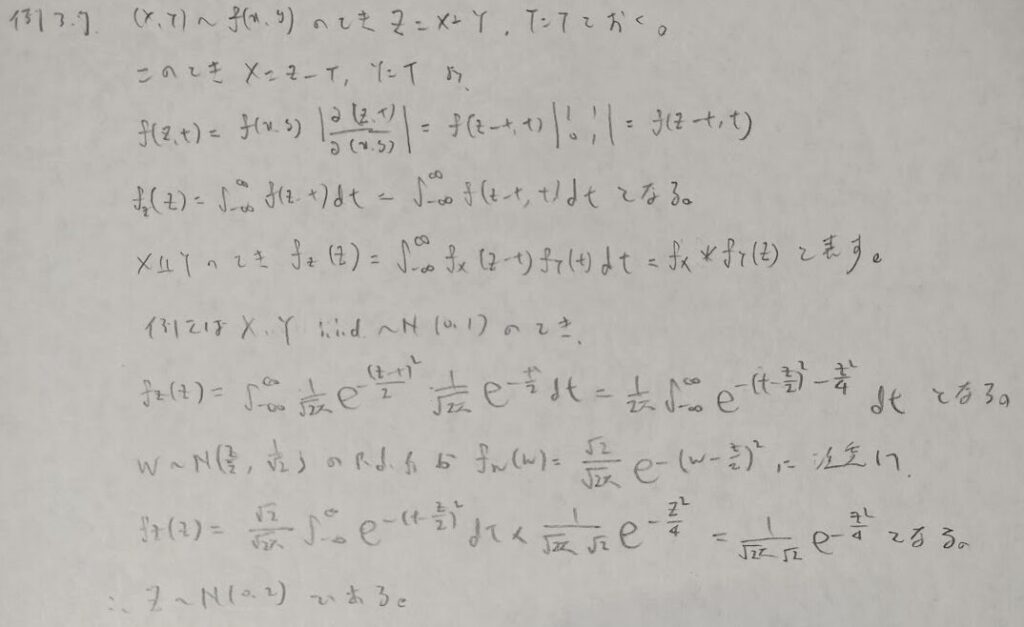 例3.7. (X, Y) ~ f(x, y) のとき Z = X + Y, T = Y とおく。
このとき X = Z - T, Y = T より、
f(z, t) = f(x, y) |∂(z, t)/∂(x, y)| = f(z-t, t) |1 1; 0 1| = f(z-t, t)
f_z(z) = ∫_{-∞}^{∞} f(z, t) dt = ∫_{-∞}^{∞} f(z-t, t) dt となる。
X⫫Y のとき f_z(z) = ∫_{-∞}^{∞} f_X(z-t) f_Y(t) dt = f_X * f_Y(z) と表す。
例えば X, Y i.i.d. ~ N(0, 1) のとき、
f_z(z) = ∫_{-∞}^{∞} 1/√2π e^{-(z-t)²/2} 1/√2π e^{-t²/2} dt = 1/2π ∫_{-∞}^{∞} e^{-(t-z/2)² - z²/4} dt となる。
W ~ N(z/2, 1/√2) の p.d.f. が f_W(w) = √2/√2π e^{-(w-z/2)²} に注意して、
f_z(z) = √2/√2π ∫_{-∞}^{∞} e^{-(t-z/2)²} dt × 1/√2π√2 e^{-z²/4} = 1/√2π√2 e^{-z²/4} となる。
∴ Z ~ N(0, 2) である。